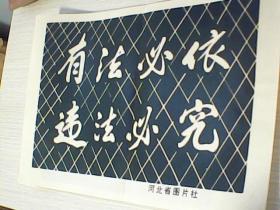 有法必依
违法必究
河北省图片社